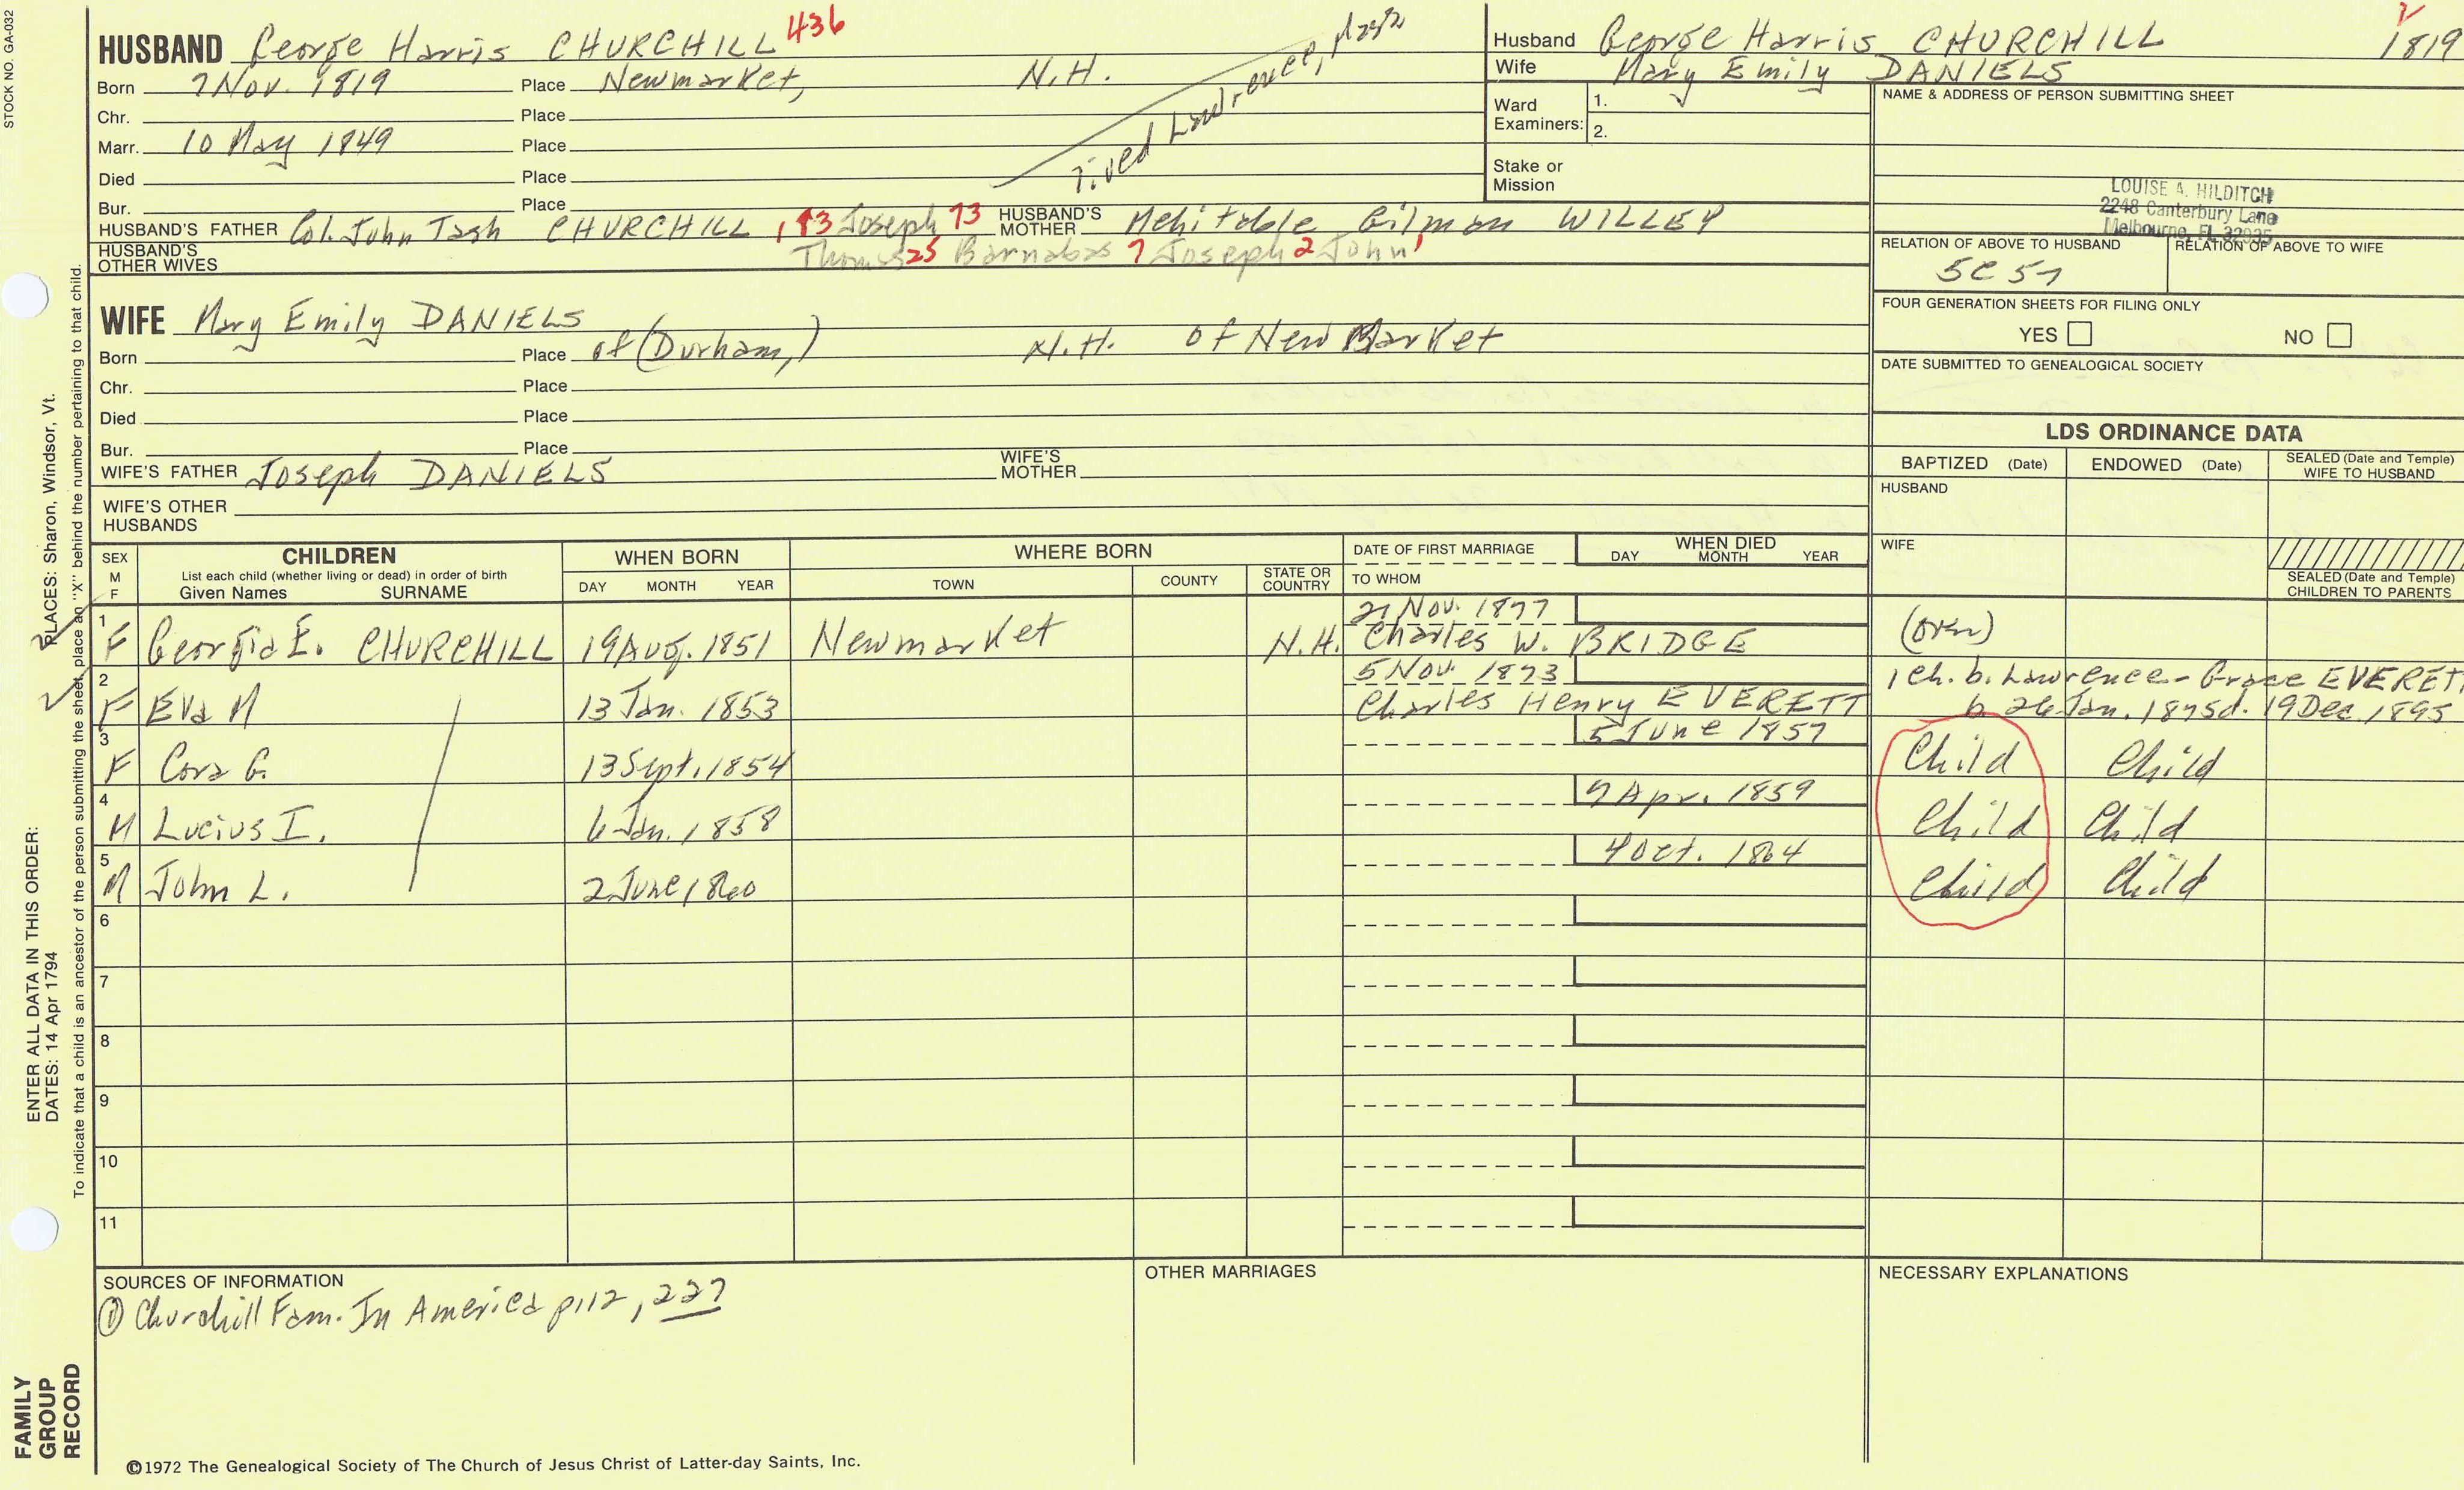 STOCK NO. GA-032
HUSBAND George Harris CHURCHILL 436
Born 7 Nov. 1819 Place Newmarket, N.H.
Chr. Place
Marr. 10 May 1849 Place
Died Place
Bur. Place
lived Lawrence, Mass
HUSBAND'S FATHER Col. John Tash CHURCHILL, 183 Joseph 73 HUSBAND'S MOTHER Mehitable Gilman WILLEY
HUSBAND'S OTHER WIVES Thomas 25 Barnabas 7 Joseph 2 John 1
WIFE Mary Emily DANIELS
Born Place of (Durham,) N.H. of New Market
Chr. Place
Died Place
Bur. Place
WIFE'S FATHER Joseph DANIELS WIFE'S MOTHER
WIFE'S OTHER HUSBANDS
Husband George Harris CHURCHILL 1819
Wife Mary Emily DANIELS
Ward Examiners: 1.
2.
Stake or Mission
NAME & ADDRESS OF PERSON SUBMITTING SHEET
LOUISE A. HILDITCH
2248 Canterbury Lane
Melbourne, FL 32935
RELATION OF ABOVE TO HUSBAND RELATION OF ABOVE TO WIFE
5C 5
FOUR GENERATION SHEETS FOR FILING ONLY
YES NO
DATE SUBMITTED TO GENEALOGICAL SOCIETY
LDS ORDINANCE DATA
BAPTIZED (Date) ENDOWED (Date) SEALED (Date and Temple) WIFE TO HUSBAND
HUSBAND
WIFE
SEALED (Date and Temple) CHILDREN TO PARENTS
SEX M F CHILDREN List each child (whether living or dead) in order of birth Given Names SURNAME
WHEN BORN DAY MONTH YEAR
WHERE BORN TOWN COUNTY STATE OR COUNTRY
DATE OF FIRST MARRIAGE TO WHOM
WHEN DIED DAY MONTH YEAR
1 F Georgia E. CHURCHILL 19 Aug. 1851 Newmarket N.H. 27 Nov. 1877 Charles W. BRIDGE (over)
2 F Eva M 13 Jan. 1853 5 Nov. 1873 Charles Henry EVERETT 1 ch. b. Lawrence - Grace EVERETT
b. 26 Jan. 1875 d. 19 Dec. 1895
3 F Cora G. 13 Sept. 1854 5 June 1857 Child Child
4 M Lucius I. 6 Jan. 1858 7 Apr. 1859 Child Child
5 M John L. 2 June 1860 4 Oct. 1864 Child Child
6
7
8
9
10
11
SOURCES OF INFORMATION
① Churchill Fam. In America p112, 227
OTHER MARRIAGES
NECESSARY EXPLANATIONS
©1972 The Genealogical Society of The Church of Jesus Christ of Latter-day Saints, Inc.
FAMILY
GROUP
RECORD
ENTER ALL DATA IN THIS ORDER:
DATES: 14 Apr 1794 PLACES: Sharon, Windsor, Vt.
To indicate that a child is an ancestor of the person submitting the sheet, place an "X" behind the number pertaining to that child.